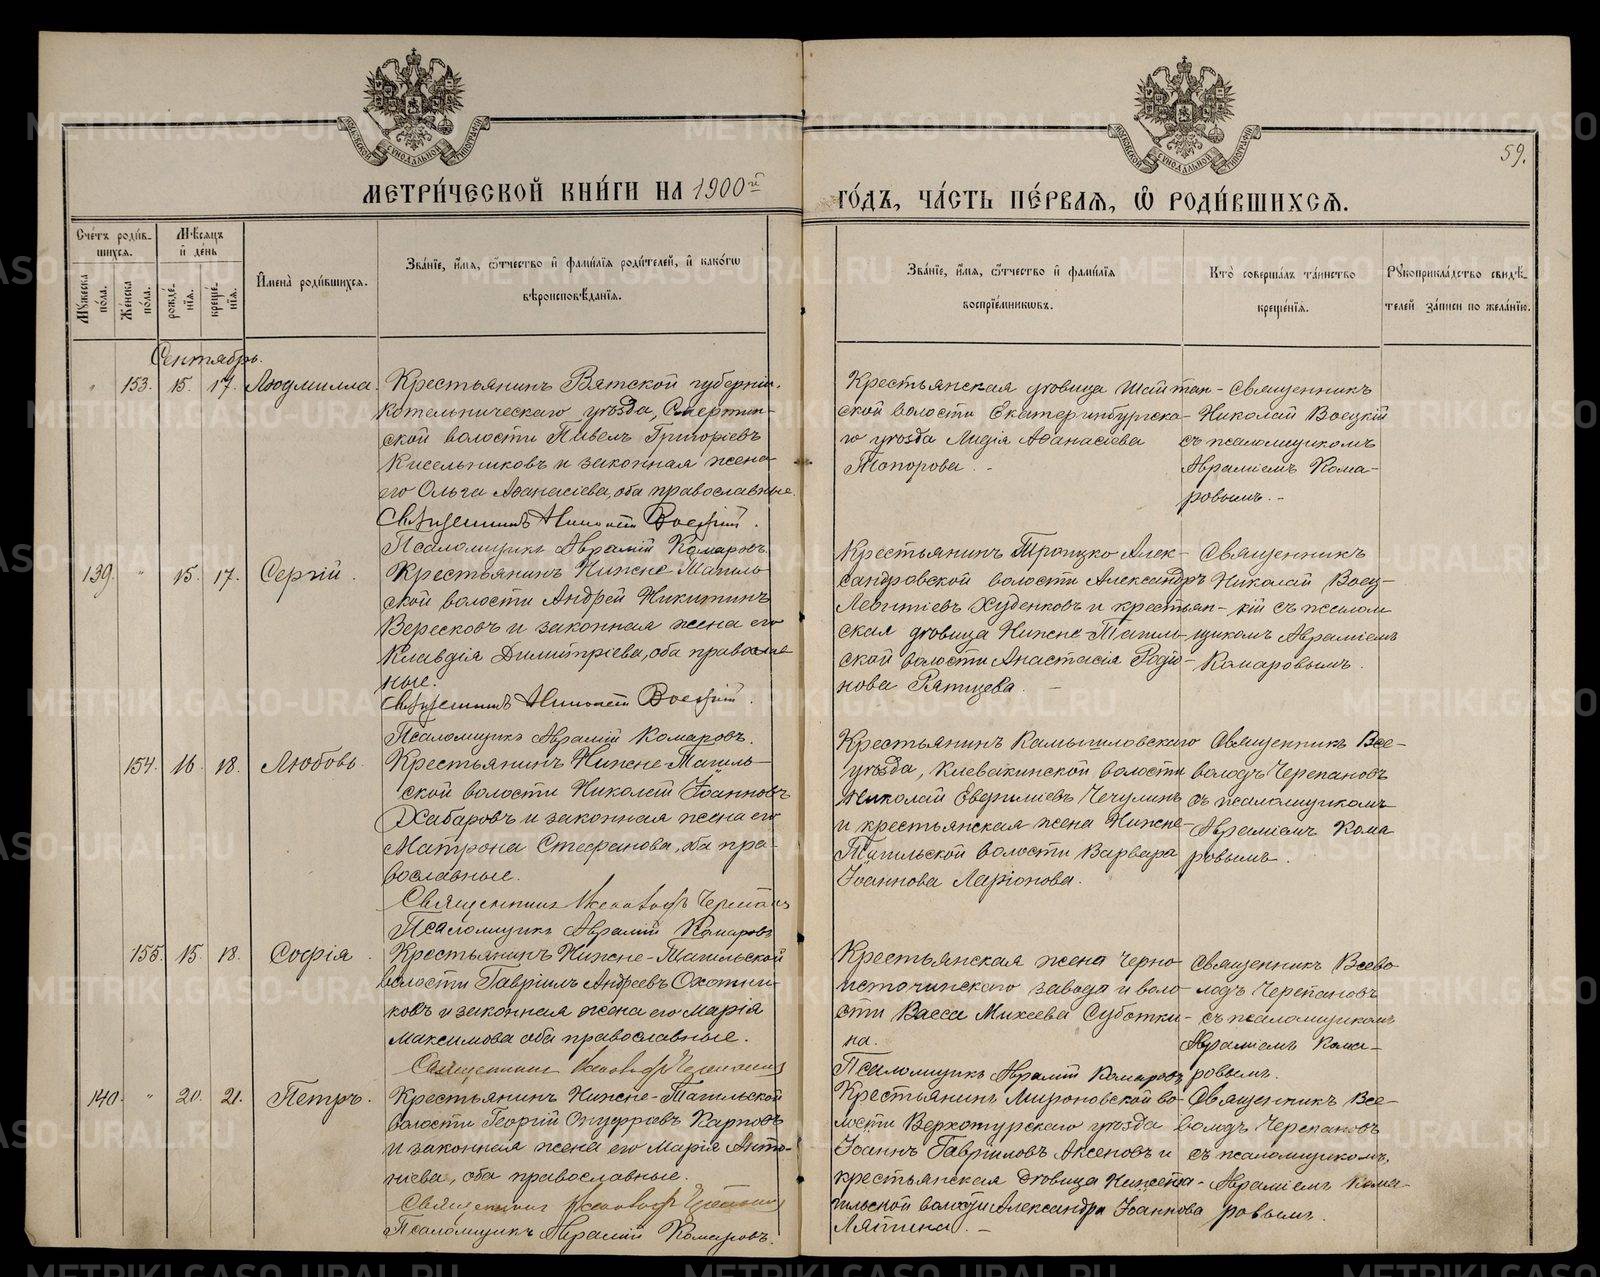 МЕТРИ́ЧЕСКОЙ КНИ́ГИ НА 1900й
ГО́ДЪ, ЧА́СТЬ ПЕ́РВАЯ, Ѡ РОДИ́ВШИХСЯ.
59.
Сче́тъ роди́в-
шихся.
Мѣ́сяцъ
и де́нь
Му́жеска
по́ла.
Же́нска
по́ла.
рожде́-
нія.
креще́-
нія.
Имена̀ роди́вшихся.
Зва́ніе, и́мя, о́тчество и фами́лія роди́телей, и како́гѡ
вѣроисповѣ́данія.
Зва́ніе, и́мя, о́тчество и фами́лія
воспріе́мниковъ.
Кто̀ соверша́лъ та́инство
креще́нія.
Рукоприкла́дство свидѣ́-
телей за́писи по жела́нію.
Сентябрь.
" 153. 15. 17. Людмилла.
Крестьянинъ Вятской губерніи,
Котельническаго уѣзда, Смертин-
ской волости Павелъ Григоріевъ
Кисельниковъ и законная жена
его Ольга Аѳанасіева, оба православные.
Священникъ Николай Воецкій.
Псаломщикъ Аврамій Комаровъ.
Крестьянская дѣвица Шайтан-
ской волости Екатеринбургска-
го уѣзда Лидія Аѳанасіева
Топорова.
Священникъ
Николай Воецкій
съ псаломщикомъ
Авраміемъ Кома-
ровымъ.
139. " 15. 17. Сергій.
Крестьянинъ Нижне-Тагиль-
ской волости Андрей Никитинъ
Вересковъ и законная жена его
Клавдія Димитріева, оба православ-
ные.
Священникъ Николай Воецкій.
Псаломщикъ Аврамій Комаровъ.
Крестьянинъ Троицко-Алек-
сандровской волости Александръ
Леонтіевъ Худенковъ и крестьян-
ская дѣвица Нижне-Тагиль-
ской волости Анастасія Родіо-
нова
Священникъ
Николай Воец-
кій съ псалом
щикомъ Авраміемъ
Комаровымъ.
154. 16. 18. Любовь.
Крестьянинъ Нижне-Тагиль-
ской волости Николай Іоанновъ
Хабаровъ и законная жена его
Матрона Стефанова, оба пра-
вославные.
Священникъ Всеволодъ Черепановъ
Псаломщикъ Аврамій Комаровъ
Крестьянинъ Камышловскаго
уѣзда, Клевакинской волости
Николай Чечулинъ
и крестьянская жена Нижне-
Тагильской волости Варвара
Іоаннова Ларіонова.
Священникъ Все-
володъ Черепановъ
съ псаломщикомъ
Авраміемъ Кома
ровымъ.
155. 15. 18. Софія.
Крестьянинъ Нижне-Тагильской
волости Гавріилъ Андреевъ Охотни-
ковъ и законная жена его Марія
Максимова оба православные.
Священникъ Всеволодъ Черепановъ
Крестьянская жена Черно-
источинскаго завода и воло-
сти Васса Михеева Субботки-
на.
Псаломщикъ Аврамій Комаровъ
Священникъ Всево-
лодъ Черепановъ
съ псаломщикомъ
Авраміемъ Кома-
ровымъ.
140. " 20. 21. Петръ.
Крестьянинъ Нижне-Тагильской
волости Георгій Онуфріевъ Карповъ
и законная жена его Марія Анто-
ніева, оба православные.
Священникъ Всеволодъ Черепановъ
Псаломщикъ Аврамій Комаровъ.
Крестьянинъ Мироновской во-
лости Верхотурскаго уѣзда
Іоаннъ Гавріиловъ Аксеновъ и
крестьянская дѣвица Нижнета-
гильской волости Александра Іоаннова
Ляпина.
Священникъ Все-
володъ Черепановъ
съ псаломщикомъ
Авраміемъ Кома-
ровымъ.
METRIKI.GASO-URAL.RU